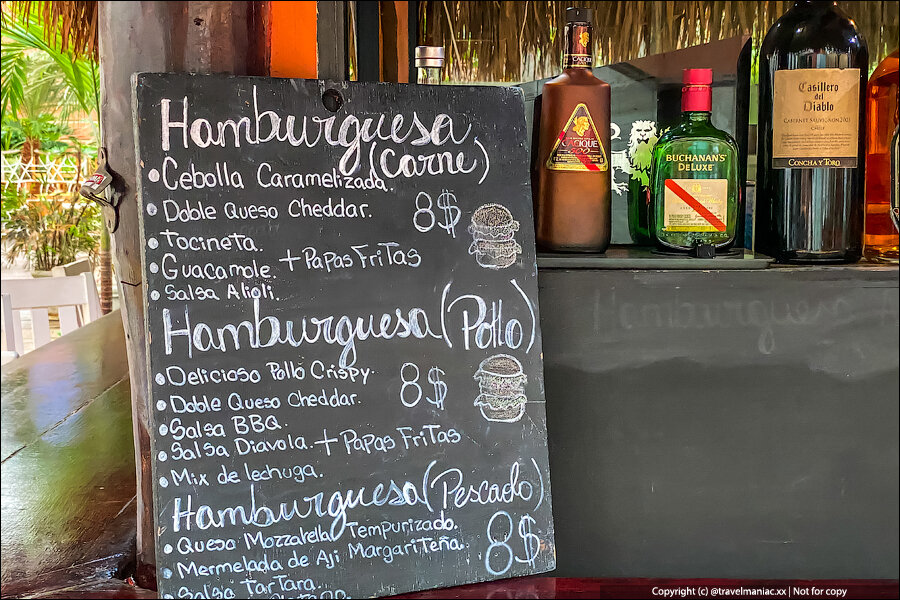 Hamburguesa
(Carne)
• Cebolla Caramelizada.
• Doble Queso Cheddar.
8$
• Tocineta.
• Guacamole. + Papas Fritas
• Salsa Alioli.
Hamburguesa (Pollo)
• Delicioso Pollo Crispy.
8$
• Doble Queso Cheddar.
• Salsa BBQ.
• Salsa Diavola. + Papas Fritas
• Mix de lechuga.
Hamburguesa (Pescado)
• Queso Mozzarella Tempurizado.
8$
• Mermelada de Aji Margariteña.
• Salsa Tartara.
CACIQUE
500
BUCHANAN'S
DELUXE
Casillero
del
Diablo
CABERNET SAUVIGNON 2021
CHILE
CONCHA Y TORO
Hamburguesa
Copyright (c) @travelmaniac.xx | Not for copy